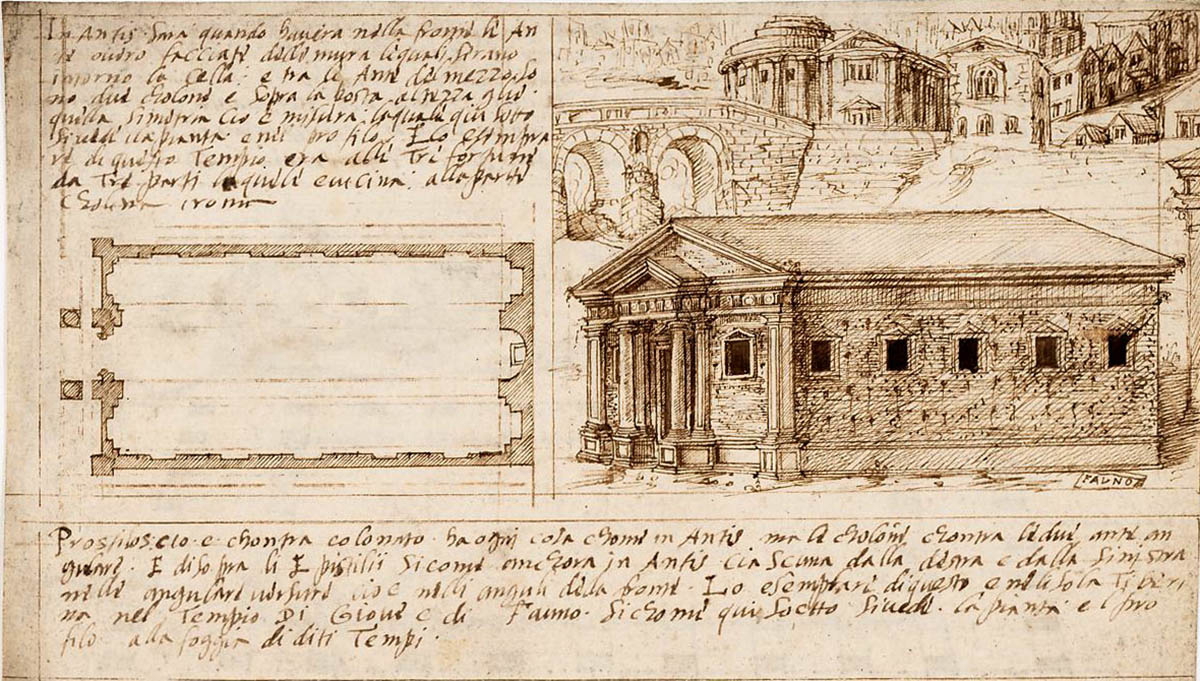 In Antis sara quando havera nella fronte le An
te overo facciate delle mura lequali serano
intorno la Cella: e tra le Ante del mezzo so
no due cholone e sopra la
quella simetria cio e misura laquale qui sotto
si vede la pianta e nel profilo. E lo
re di questo Tempio era alle Tre fortune
da Tre parti laquele e vicina alla porta
Cholina
FAVNO
Prostilos cio e chontra colonato ha ogni cosa chome in Antis ma le cholone chontra le due ante an
gulare. E di sopra li E pistilii Sicome anchora in Antis Ciascuna dalla destra e dalla sinistra
nelle angulare versure cio e nelli anguli dela fronte. Lo esemplare di questo e nelisola Tiberi
na nel Tempio Di Giove e di Fauno. Sichome qui Sotto Sivede la pianta e l pro
filo alla foggia di diti Tempi.